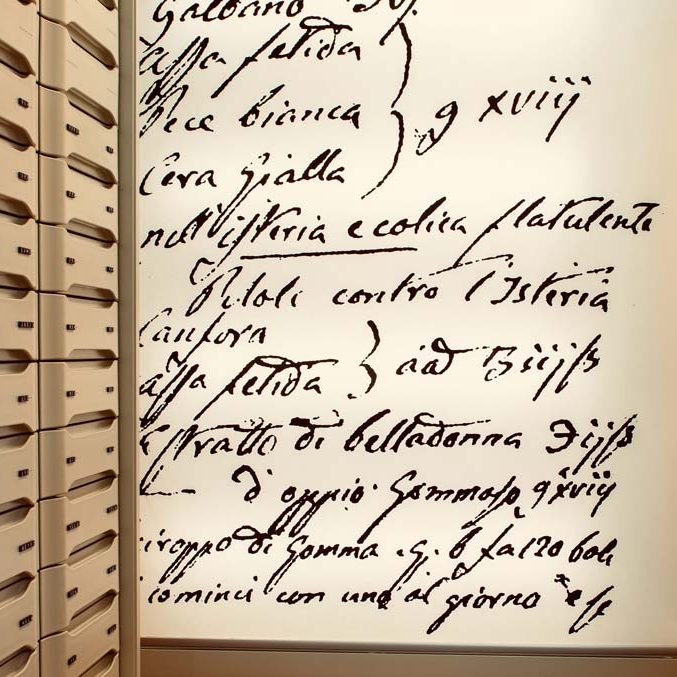 Galbano
assa fetida
Pece bianca g xviij
Cera Gialla
nell'isteria e colica flatulente
Piloli contro l'Isteria
Canfora
assa fetida aad
Estratto di belladonna
d'oppio Gommoso g xviij
siroppo di Gomma q. b fa 120 boli
cominci con uno al giorno e se